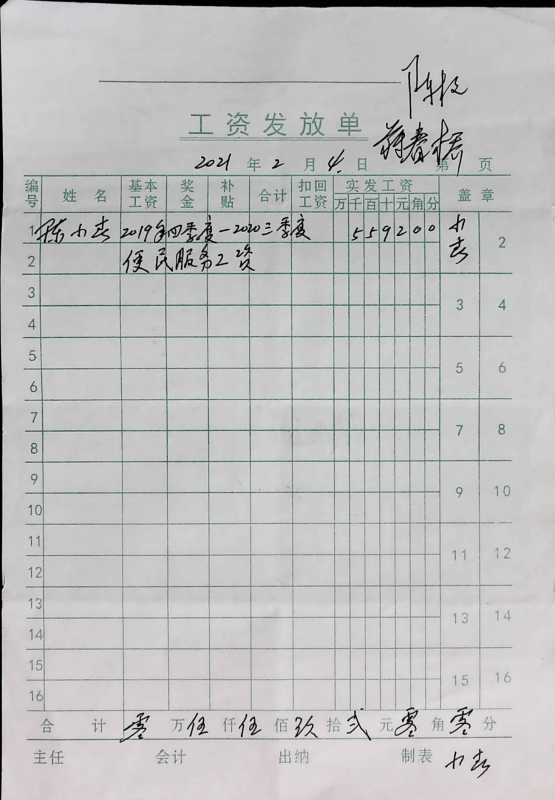 工资发放单
2021 年 2 月 4 日 第 页
编号 姓名 基本工资 奖金 补贴 合计 扣回工资 实发工资 万 千 百 十 元 角 分 盖章
1 小春 2019年四季度-2020三季度 5 5 9 2 0 0 小春 2
2 便民服务工资
3 3 4
4
5 5 6
6
7 7 8
8
9 9 10
10
11 11 12
12
13 13 14
14
15 15 16
16
合计 零 万 伍 仟 伍 佰 玖 拾 贰 元 零 角 零 分
主任 会计 出纳 制表 小春